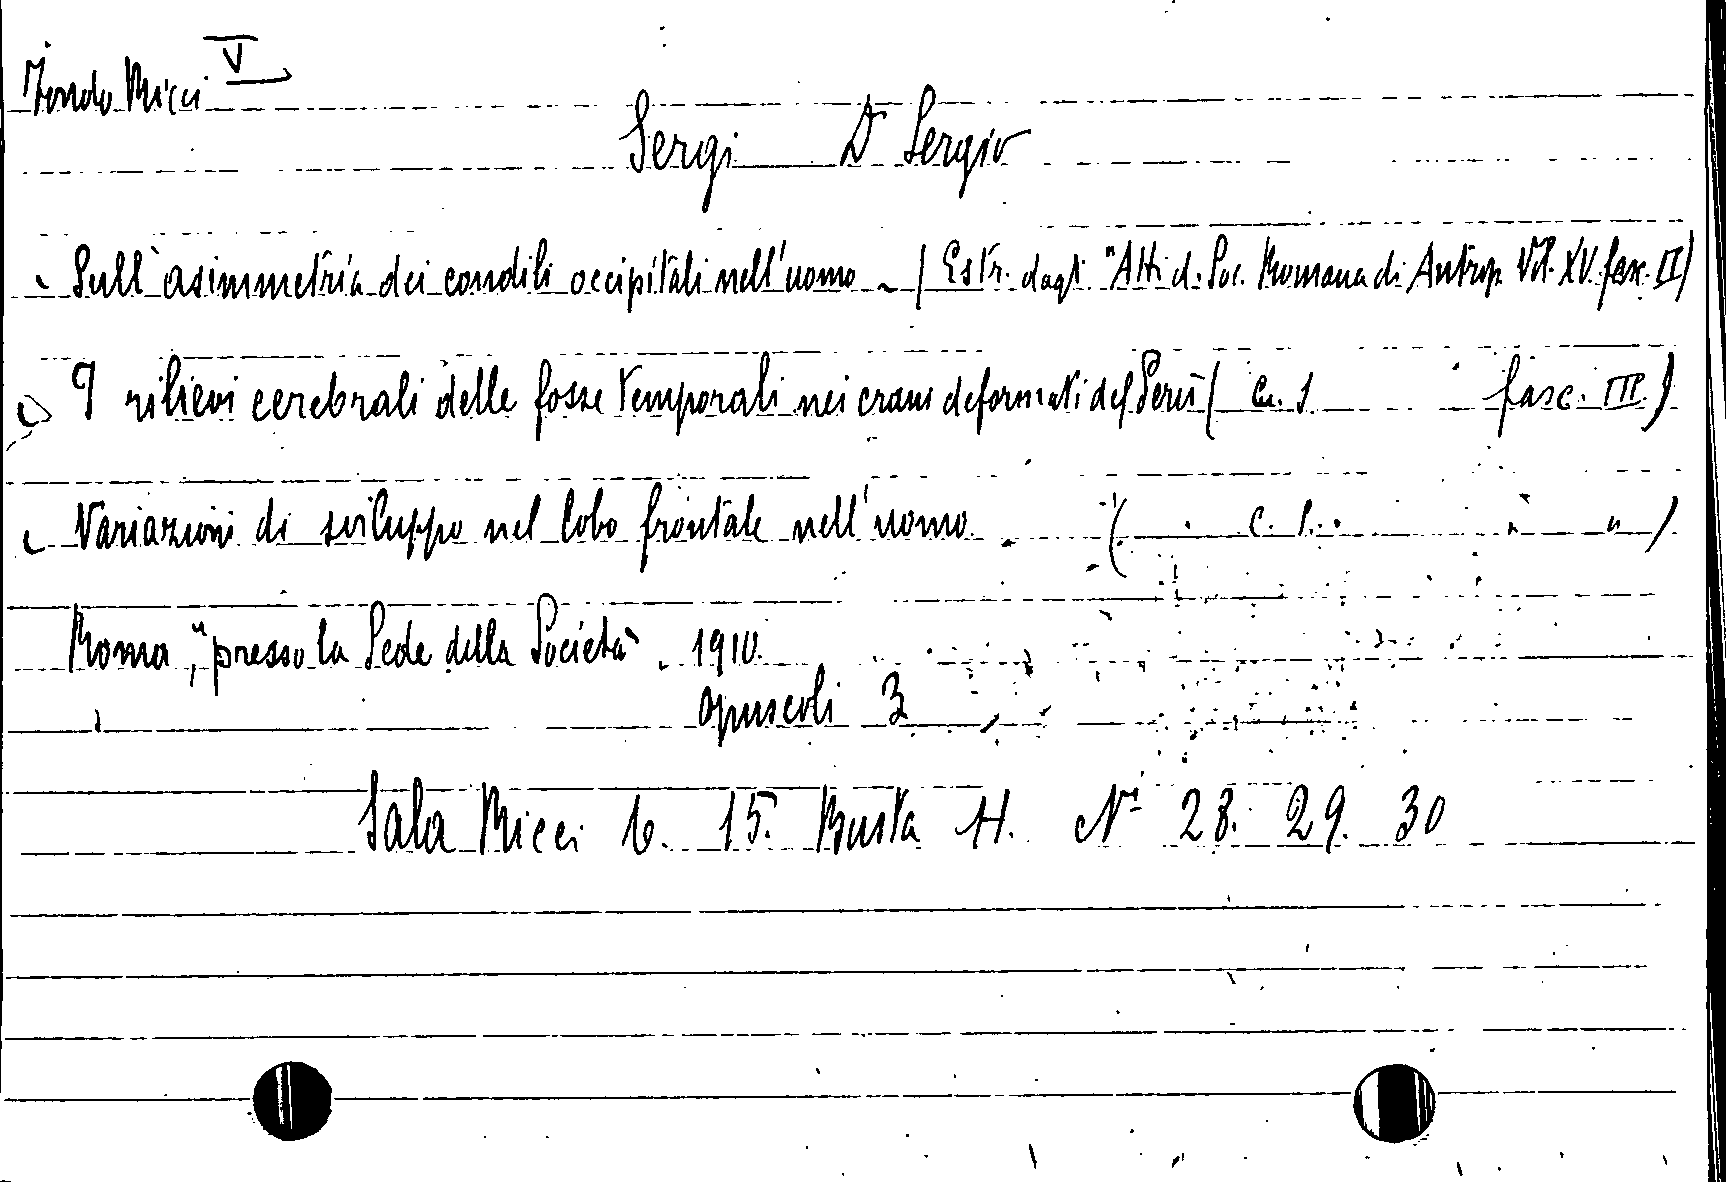 Fondo Ricci V
Sergi Dr Sergio
Sull'asimmetria dei condili occipitali nell'uomo - (Estr. dagli "Atti d. Soc. Romana di Antrop. Vol. XV. fasc. II)
I rilievi cerebrali delle fosse temporali nei crani deformati del Perù ( c. s. fasc. III.)
Variazioni di sviluppo nel lobo frontale nell'uomo. ( " c. s. " " " )
Roma, "presso la Sede della Società". 1910.
opuscoli 3
Sala Ricci 6. 15. Busta H. Ni 28. 29. 30